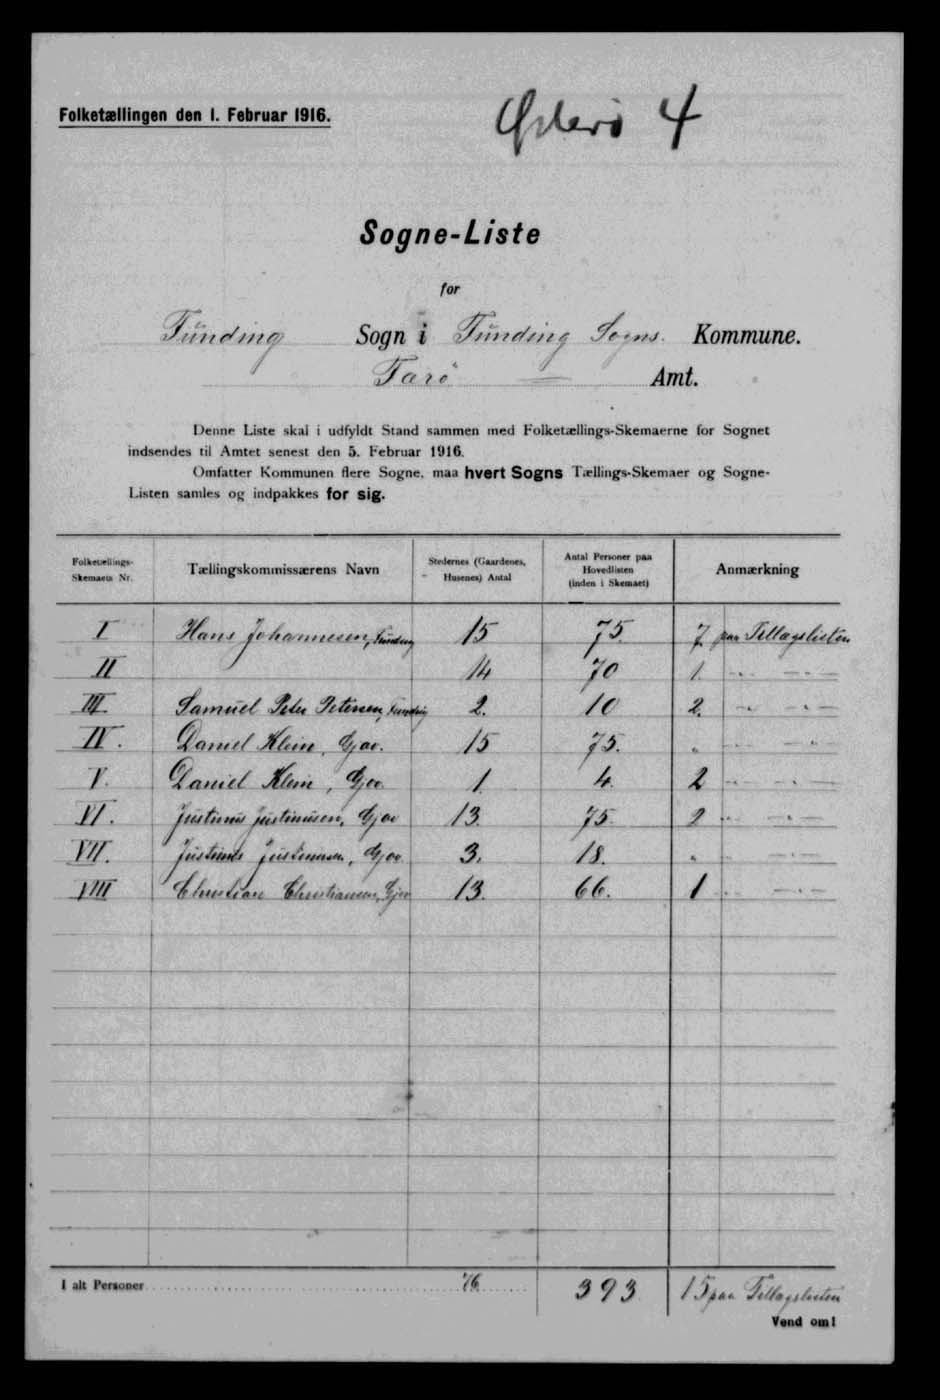 Folketællingen den 1. Februar 1916.
Østerö 4
Sogne-Liste
for
Funding Sogn i Funding Sogns. Kommune.
Færö Amt.
Denne Liste skal i udfyldt Stand sammen med Folketællings-Skemaerne for Sognet
indsendes til Amtet senest den 5. Februar 1916.
Omfatter Kommunen flere Sogne, maa hvert Sogns Tællings-Skemaer og Sogne-
Listen samles og indpakkes for sig.
Folketællings-
Skemaets Nr.
Tællingskommissærens Navn
Stedernes (Gaardenes,
Husenes) Antal
Antal Personer paa
Hovedlisten
(inden i Skemaet)
Anmærkning
I Hans Johannesen, Funding 15 75. 7 paa Tillægslisten
II 14 70 1. " — " —
III Samuel Peter Petersen, Funding 2. 10 2. " — " —
IV. Daniel Klein, Gjov. 15 75. " " — " —
V. Daniel Klein, Gjov. 1 4. 2 " — " —
VI. Justinus Justinusen, Gjov 13. 75. 2 " — " —
VII. Justinus Justinusen, Gjov. 3. 18. " " — " —
VIII Christian Christiansen, Gjov 13. 66. 1 " — " —
I alt Personer 76 393 15 paa Tillægslisten
Vend om!